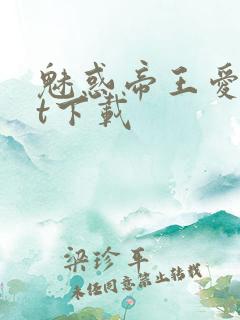 魅惑帝王爱
t下载
梁珍平
未经同意禁止转载